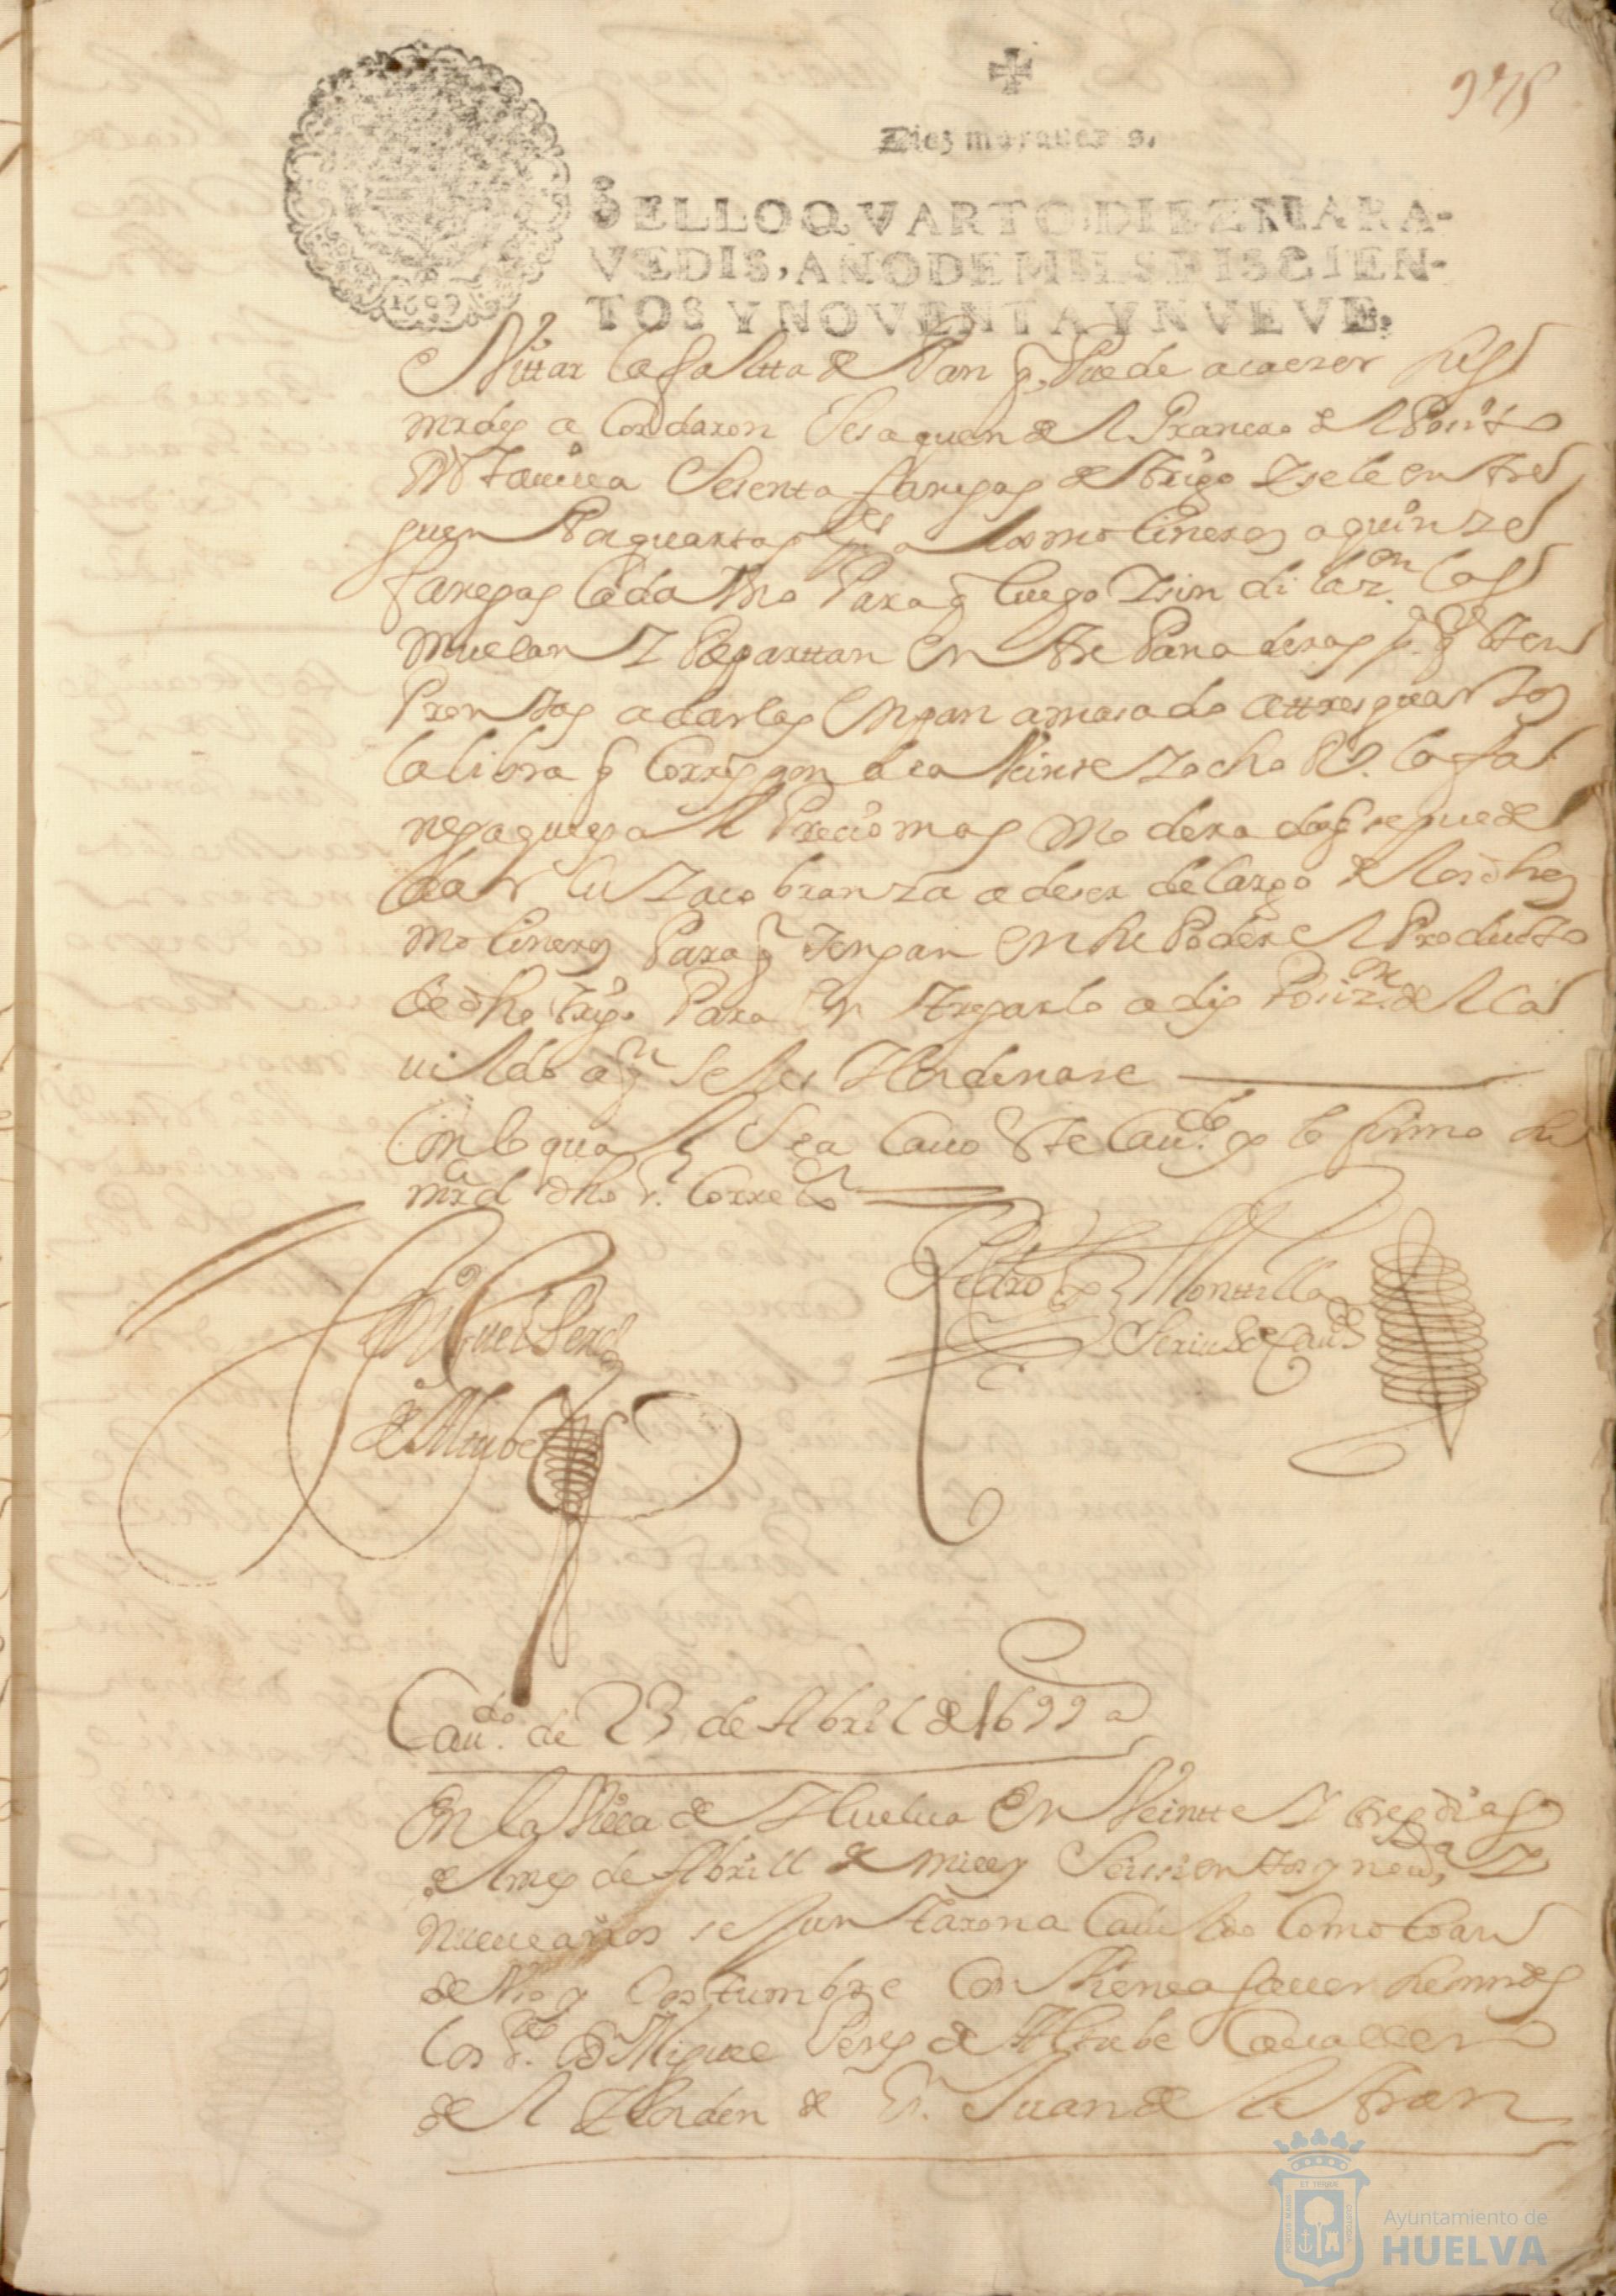 Diez maraueds.
SELLO QVARTO, DIEZ MARA-
VEDIS, AÑO DE MIL SEISCIEN-
TOS Y NOVENTA Y NVEVE.
1699
Vittar la faltta de Pan q. Puede acaezer sus
mrds acordaron Se saquen del Prancao del Posito
Sesenta fanegas de trigo Y se le entre
guen Por quartas ptes a los molineros a quinze
fanegas Cada Vno Para q luego Y sin dilazon las
muelan Y Reparttan Entre Panaderas p. q Sten
Promtas a darlas En pan amasado a ttres quartos
la libra q Corresponde a Veinte Y ocho Rs. la fa
nega que es a el Precio mas Moderado q se puede
dar Cuya cobranza a de ser de Cargo de los dhos
Molineros Para q Tengan En su Poder el Producto
de dho trigo Para Entregarlo a dispossizn. del Ca
uildo a qn Se les Hordenare
Con lo qual Se acauo Este Caudo. y lo firmo su
mrd dho Sr. Corregor
Miguel Perez
de Altube
Pedro de Monttilla
Scriu de Caudo
Caudo. de 23 de Abril de 1699 a
En la Villa de Huelua En Veintte Y tres dias
del mes de Abrill de mill y Seissientos y nouta Y
nueue años se Juntaron a Cauildo Como lo an
de Vso y Costumbre Conbiene a sauer sus mrds
Los Sres. Dn Miguel Peres de Altube Cauallero
del Horden de Sn. Juan de Letran
Ayuntamiento de
HUELVA